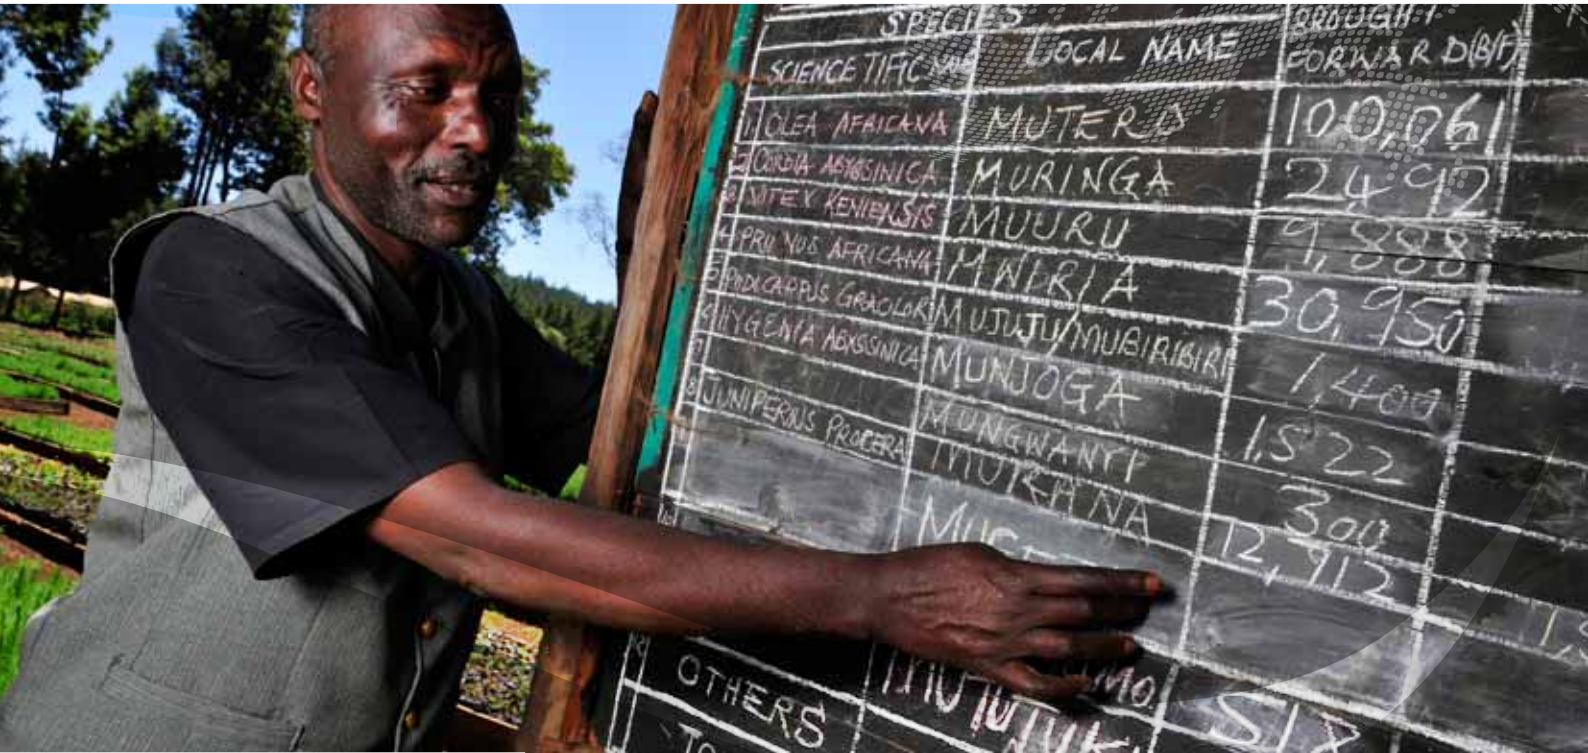 SPECIES BROUGHT
SCIENCETIFIC LOCAL NAME FORWARD(B/F)
1 OLEA AFRICANA MUTERO 100,061
2 CORDIA ABYSSINICA MURINGA 2492
3 VITEX KENIENSIS MUURU 9,888
4 PRUNUS AFRICANA MWIRIA 30,950
5 PODCARPUS GRACILOR MUJUJU/MUBIRIBIRI 1,400
6 HYGENIA ABYSSINICA MUNJOGA 1,522
7 MUNGWANYI 300
8 JUNIPERUS PROCERA MUTRANA 12,912
OTHERS